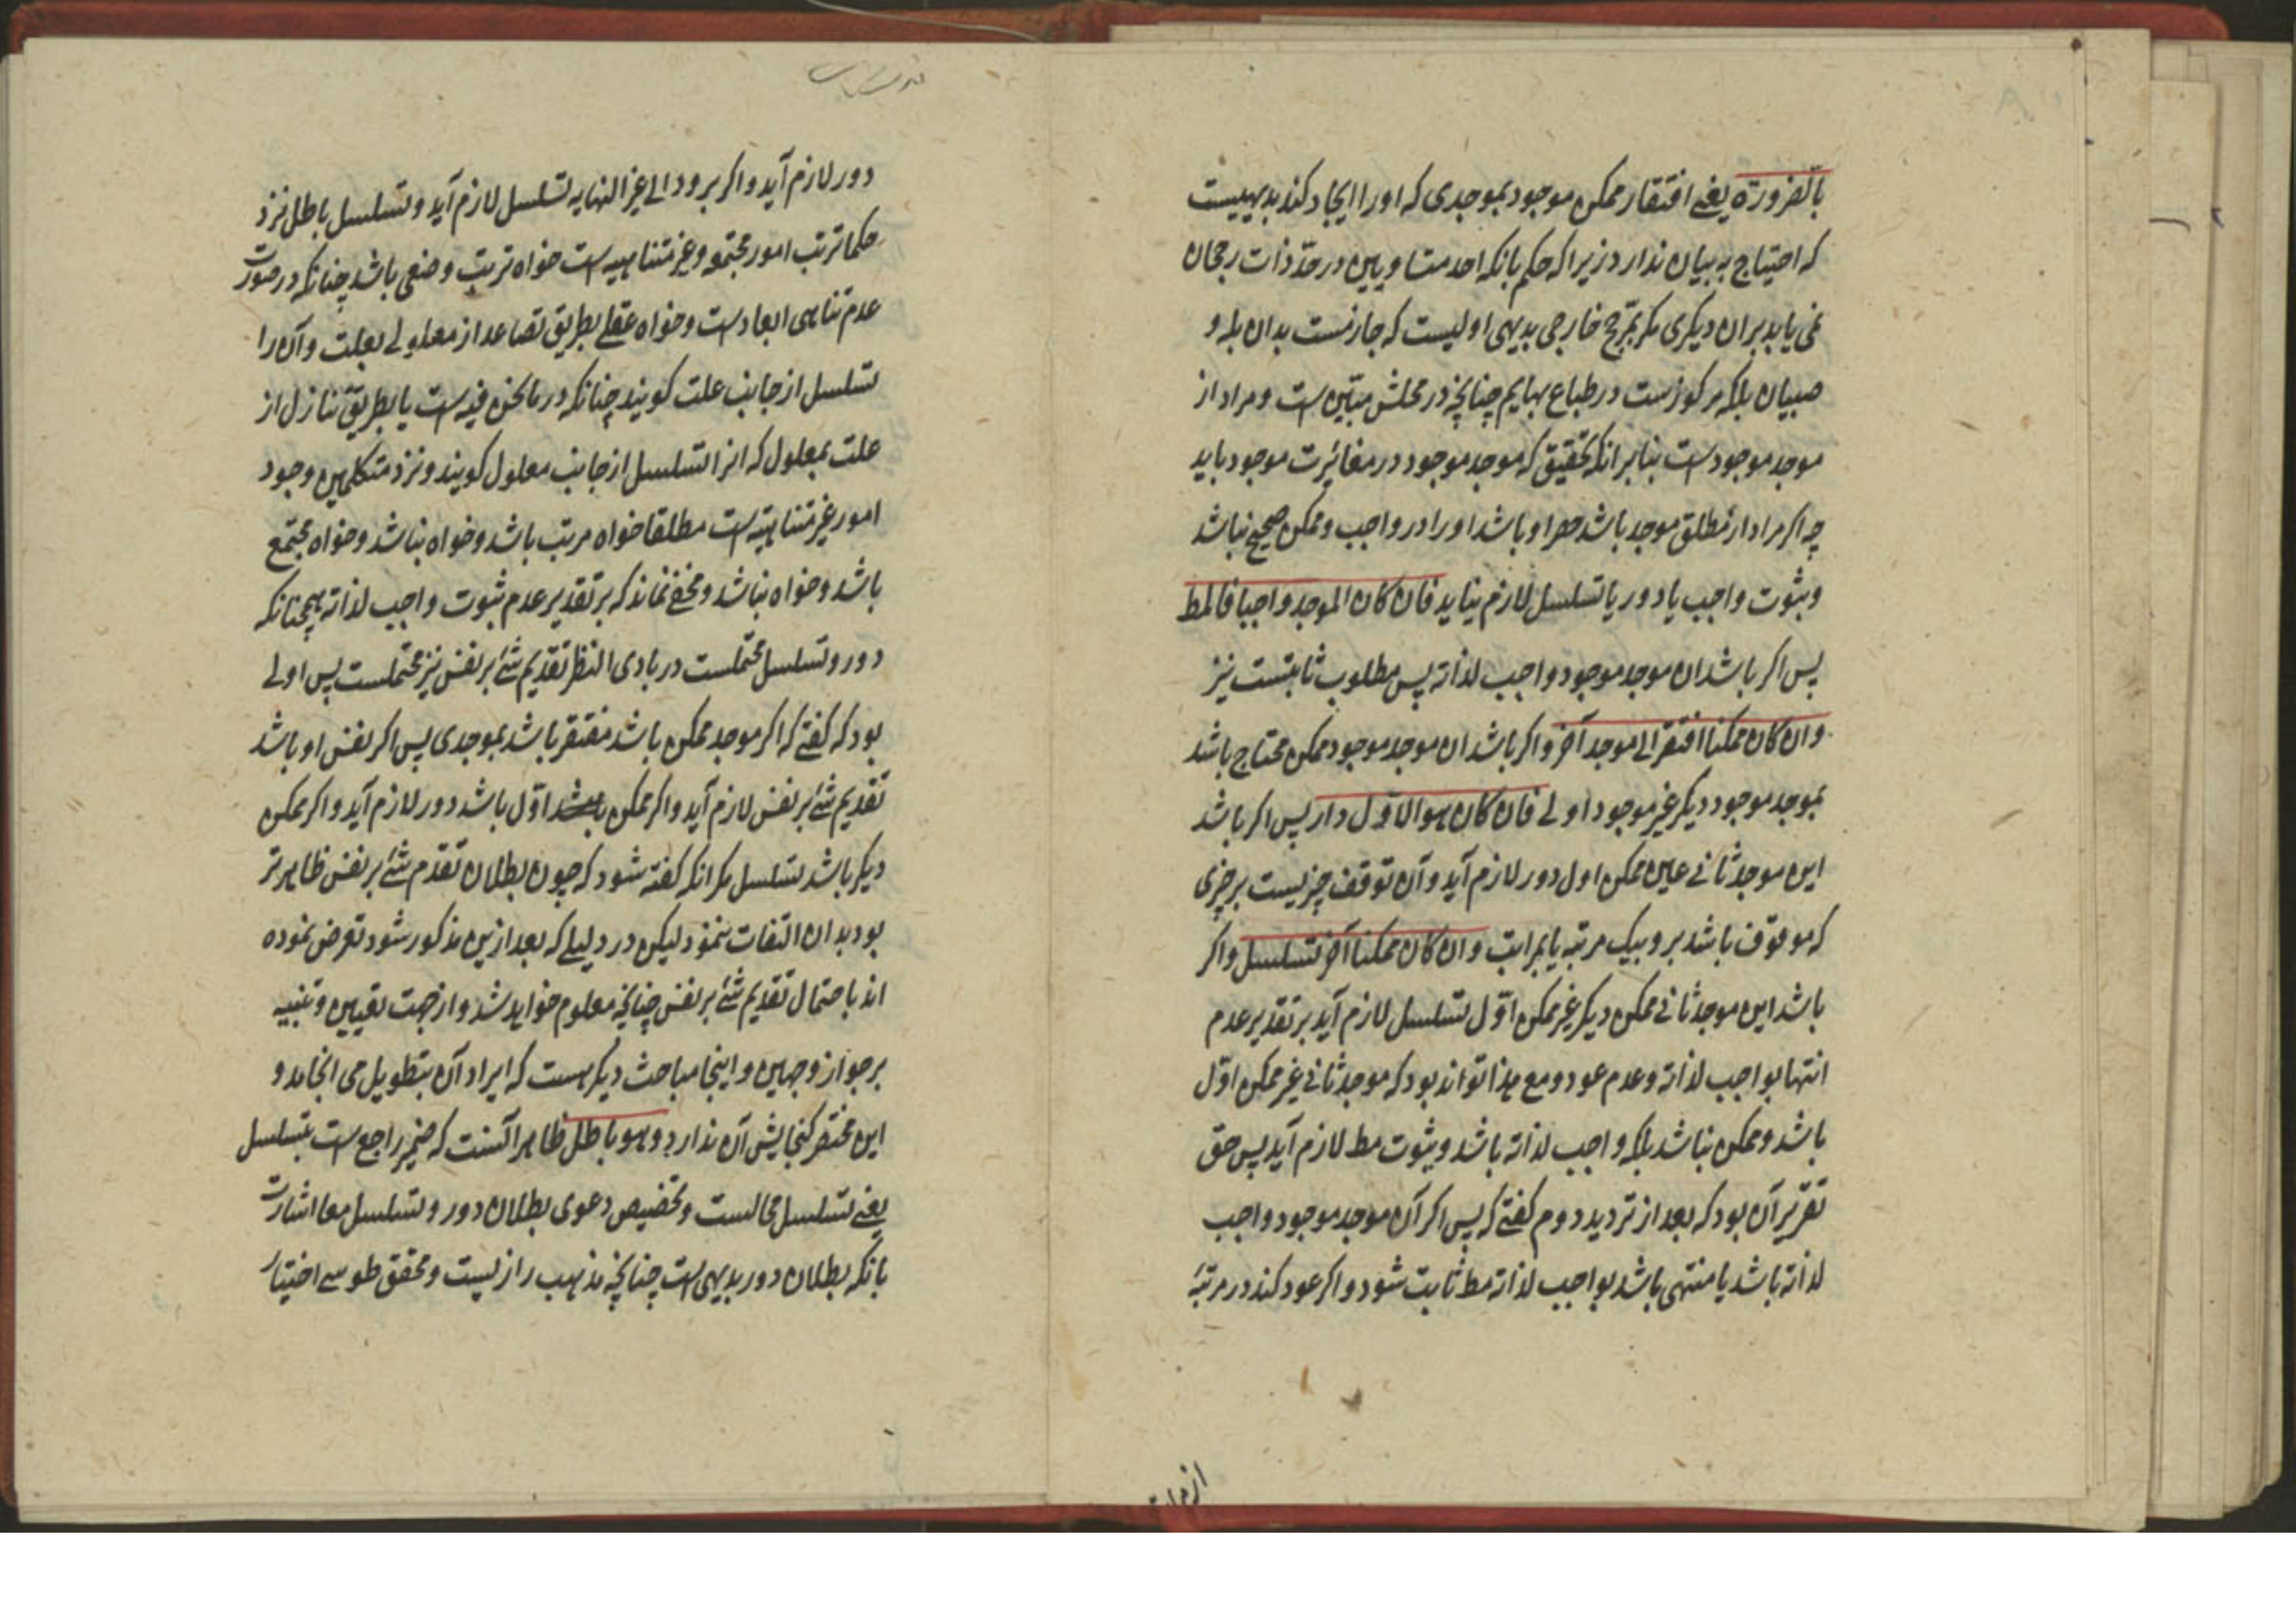 بالضرورة یعنے افتقار ممکن موجود بموجدی که اورا ایجاد کند بدیهیست
که احتیاج به بیان ندارد زیرا که حکم بانکه احد متساویین در حدّ ذات رجحان
نمی یابد بر ان دیکری مکر بمرّجح خارجی بدیهی اولیست که جازمست بدان بله و
صبیان بلکه مرکوزست در طباع بهایم چنانچه در محلش مبیّن است و مراد از
موجد موجود است بنابر انکه تحقیق که موجد موجود در مغائرت موجود باید
چه اکر مراد از مطلق موجد باشد حصر او باشد اورا در واجب و ممکن صحیح نباشد
و ثبوت واجب یا دور یا تسلسل لازم نیاید فان کان الموجد واجبا فالمط
پس اکر باشد ان موجد موجود واجب لذاته پس مطلوب ثابتست نیز
وان کان ممکنا افتقر الی موجد آخر و اکر باشد ان موجد موجود ممکن محتاج باشد
بموجد موجود دیکر غیر موجود اولے فان کان هو الاوّل دار پس اکر باشد
این موجد ثانے عین ممکن اول دور لازم آید و آن توقف چیزیست بر چیزی
که موقوف باشد برو بیک مرتبه یا بمراتب وان کان ممکنا آخر تسلسل و اکر
باشد این موجد ثانے ممکن دیکر غیر ممکن اوّل تسلسل لازم آید بر تقدیر عدم
انتها بواجب لذاته و عدم عود و مع هذا تواند بود که موجد ثانے غیر ممکن اوّل
باشد و ممکن نباشد بلکه واجب لذاته باشد و ثبوت مط لازم آید پس حق
تقریر آن بود که بعد از تردید دوم کفتے که پس اکر آن موجد موجود واجب
لذاته باشد یا منتهی باشد بواجب لذاته مط ثابت شود و اکر عود کند در مرتبهٔ
دور لازم آید و اکر برود الے غیر النهایه تسلسل لازم آید و تسلسل باطل نزد
حکما ترتب امور مجتمعه و غیر متناهییه است خواه ترتب وضعی باشد چنانکه در صورت
عدم تناهی ابعادست و خواه عقلے بطریق تصاعد از معلولے بعلت و آن را
تسلسل از جانب علت کویند چنانکه در ما نحن فیه است یا بطریق تنازل از
علت بمعلول که انرا تسلسل از جانب معلول کویند و نزد متکلمین وجود
امور غیر متناهیّه است مطلقا خواه مرتب باشد و خواه نباشد و خواه مجتمع
باشد و خواه نباشد و مخفے نماند که بر تقدیر عدم ثبوت واجب لذاته همچنانکه
دور و تسلسل محتملست در بادی النظر تقدیم شئ بر نفس نیز محتملست پس اولے
بود که کفتے که اکر موجد ممکن باشد مفتقر باشد بموجدی پس اکر نفس او باشد
تقدیم شئ بر نفس لازم آید و اکر ممکن اوّل باشد دور لازم آید و اکر ممکن
دیکر باشد تسلسل مکر انکه کفته شود که چون بطلان تقدّم شئ بر نفس ظاهر تر
بود بدان التفات ننمود لیکن در دلیلے که بعد ازین مذکور شود تعرض نموده
اند باحتمال تقدیم شئ بر نفس چنانچه معلوم خواهد شد و از جهت تعیین و تنبیه
بر جواز وجهین و اینجا مباحث دیکر هست که ایراد آن بتطویل می انجامد و
این مختصر کنجایش آن ندارد و هو باطل ظاهر آنست که ضمیر راجع است بتسلسل
یعنے تسلسل محالست و تخصیص دعوی بطلان دور و تسلسل معا اشارت
بانکه بطلان دور بدیهی است چنانچه مذهب رازیست و محقق طوسے اختیار